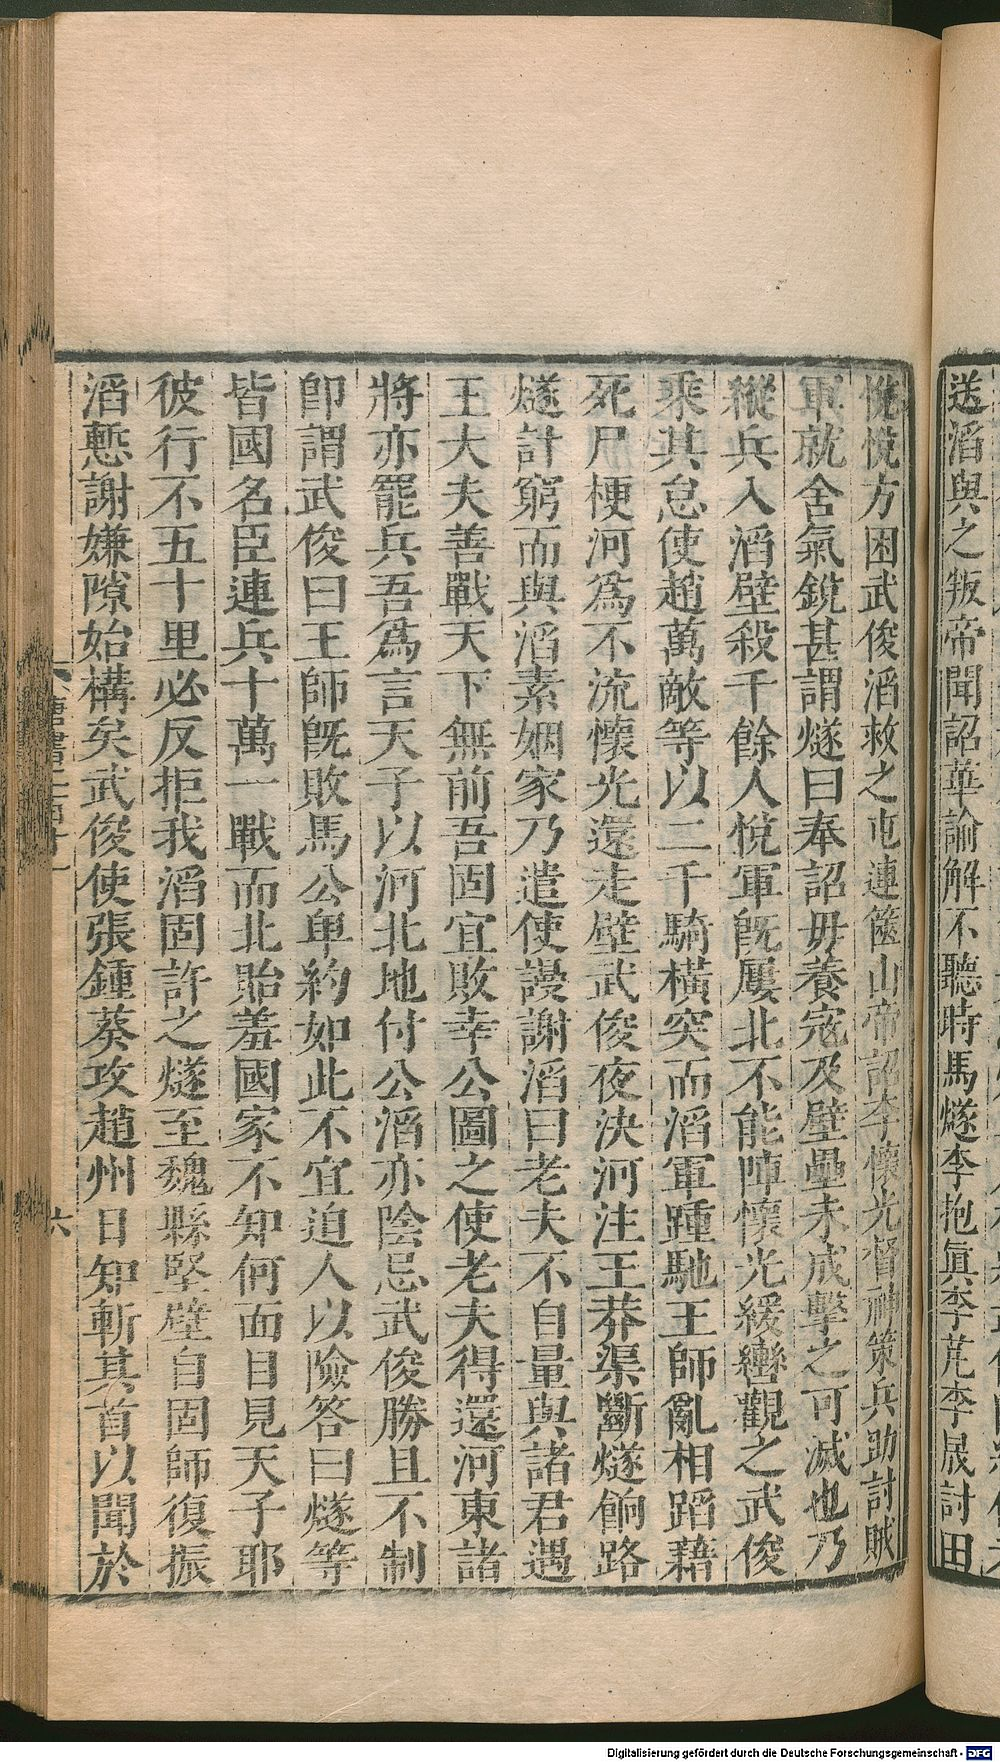 送滔與之叛帝聞詔華諭解不聽時馬燧李抱眞李芃李晟討田
悅悅方困武俊滔救之屯連篋山帝詔李懷光督神策兵助討賊
軍就舍氣銳甚謂燧曰奉詔毋養寇及壁壘未成擊之可滅也乃
縱兵入滔壁殺千餘人悅軍旣屢北不能陣懷光緩轡觀之武俊
乘其怠使趙萬敵等以二千騎橫突而滔軍踵馳王師亂相蹈藉
死尸梗河爲不流懷光還走壁武俊夜決河注王莽渠斷燧餉路
燧計窮而與滔素姻家乃遣使謾謝滔曰老夫不自量與諸君遇
王大夫善戰天下無前吾固宜敗幸公圖之使老夫得還河東諸
將亦罷兵吾爲言天子以河北地付公滔亦陰忌武俊勝且不制
卽謂武俊曰王師旣敗馬公卑約如此不宜迫人以險答曰燧等
皆國名臣連兵十萬一戰而北貽羞國家不知何面目見天子耶
彼行不五十里必反拒我滔固許之燧至魏縣堅壁自固師復振
滔慙謝嫌隙始構矣武俊使張鍾葵攻趙州日知斬其首以聞於
唐書二百十一
六
Digitalisierung gefördert durch die Deutsche Forschungsgemeinschaft - DFG